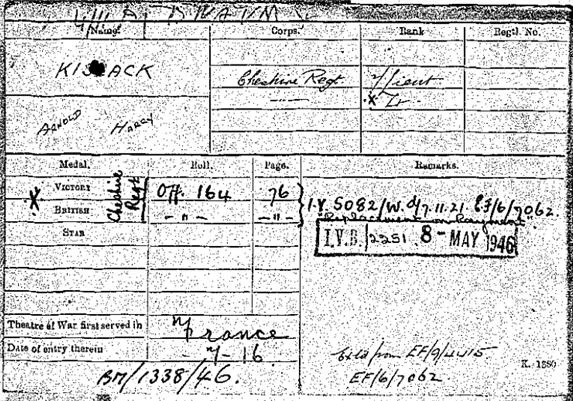 Name. Corps. Rank Regtl. No.
KISSACK Cheshire Regt 2/Lieut
—— X Lt.
ARNOLD HARRY
Medal. Roll. Page. Remarks.
X VICTORY Cheshire Regt Off. 164 76 I.V. 5082/W. d/7.11.21. EF/6/7062.
BRITISH —"— —"— Replacement on Payment
STAR I.V.B. 2251 8- MAY 1946
Theatre of War first served in France
Date of entry therein -7-16
BM/1338/46. EF/9/4415
EF/6/7062.
K. 1380